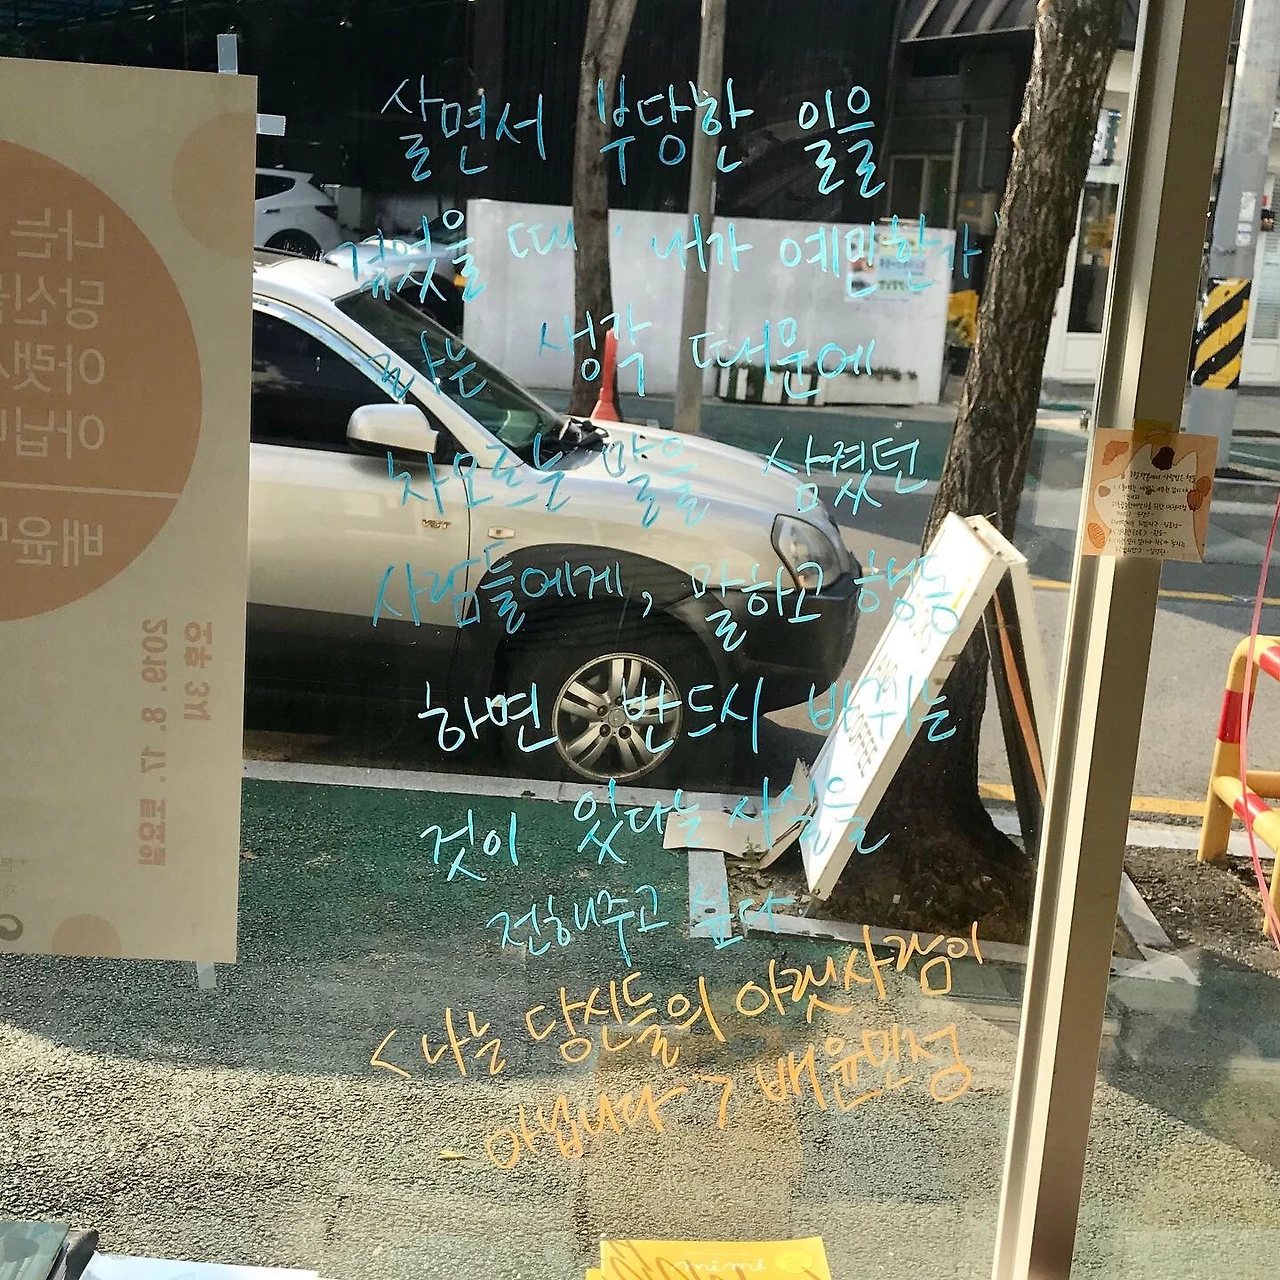 살면서 부당한 일을
겪었을 때 '내가 예민한가'
라는 생각 때문에
차오르는 말을 삼켰던
사람들에게, 말하고 행동
하면 반드시 바뀌는
것이 있다는 사실을
전해주고 싶다
<나는 당신들의 아랫사람이
아닙니다> 배윤민정
나는
당신들
아랫사
아닙니
배윤민
2019. 8. 17. 토요일
오후 3시
COFFEE
mimi